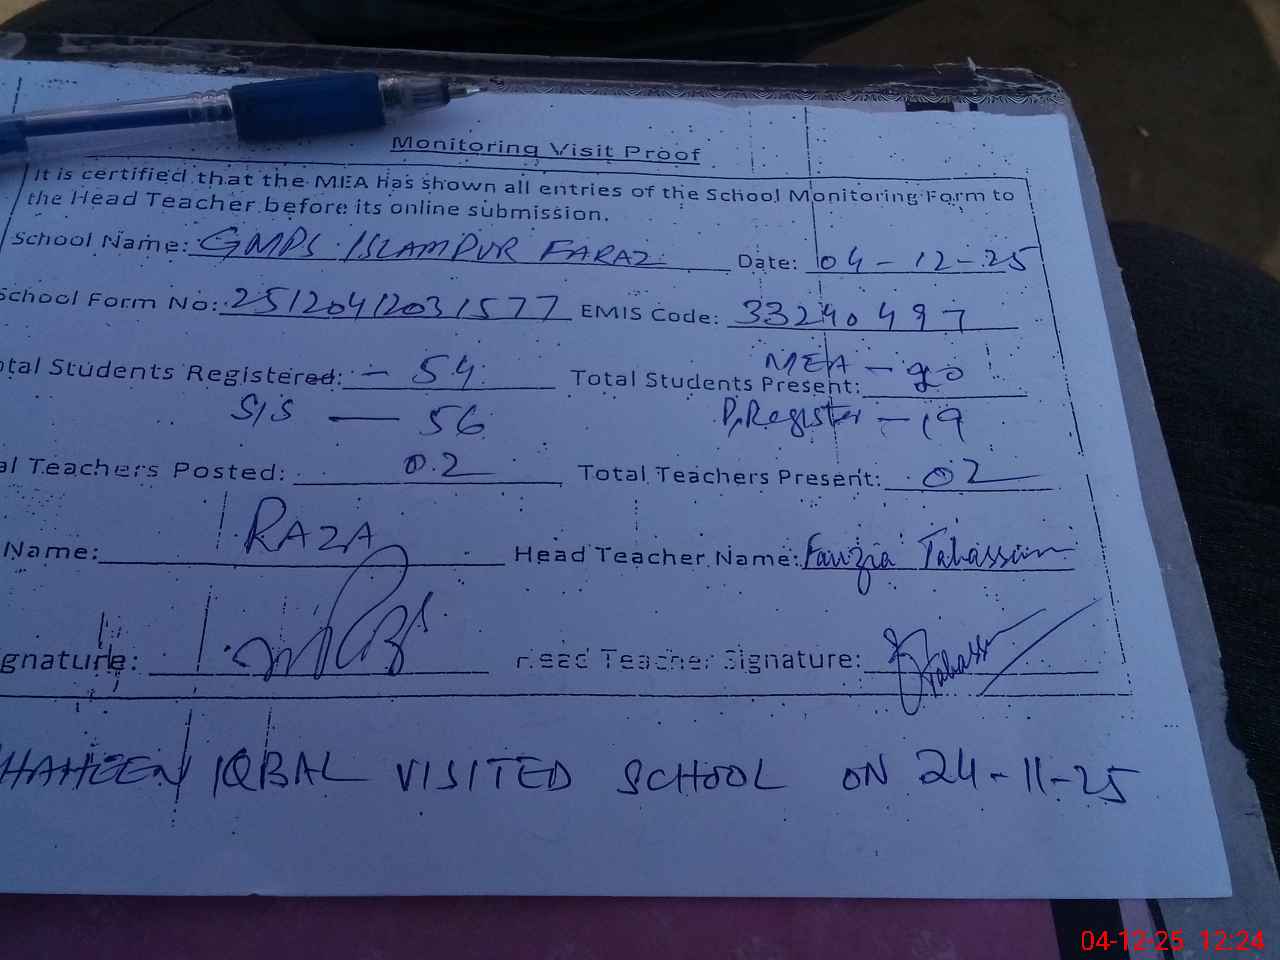 Monitoring Visit Proof
It is certified that the MEA has shown all entries of the School Monitoring Form to
the Head Teacher before its online submission.
School Name: GMPS ISLAMPUR FARAZ Date: 04-12-25
School Form No: 25120412031577 EMIS Code: 33240497
otal Students Registered: - 54 Total Students Present: MEA - 20
S/S — 56 P/Register - 19
al Teachers Posted: 02 Total Teachers Present: 02
Name: RAZA Head Teacher Name: Fauzia Tabassum
gnature: Head Teacher Signature: Tabassum
HAHEEN IQBAL VISITED SCHOOL ON 24-11-25
04-12-25 12:24